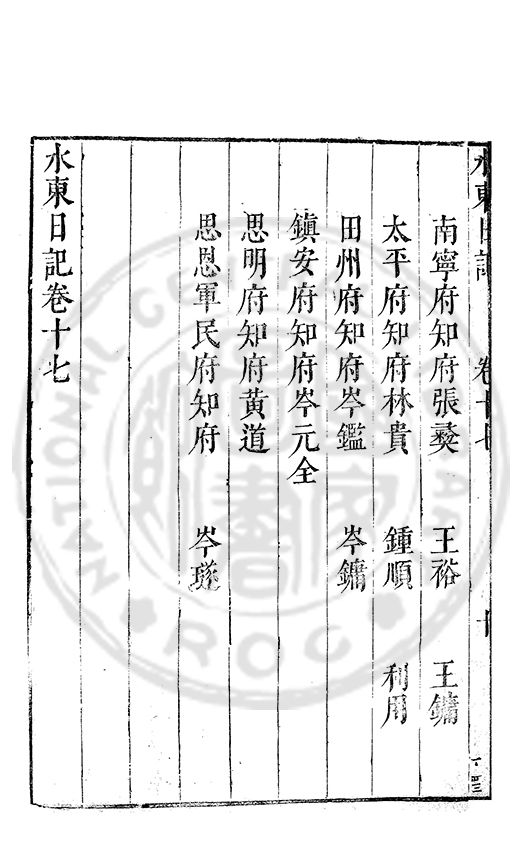 水東日記 卷十七 十
南寧府知府張㷡 王裕 王鏞
太平府知府林貴 鍾順 利用
田州府知府岑鑑 岑鏞
鎮安府知府岑元全
思明府知府黃道
思恩軍民府知府 岑璲
水東日記卷十七